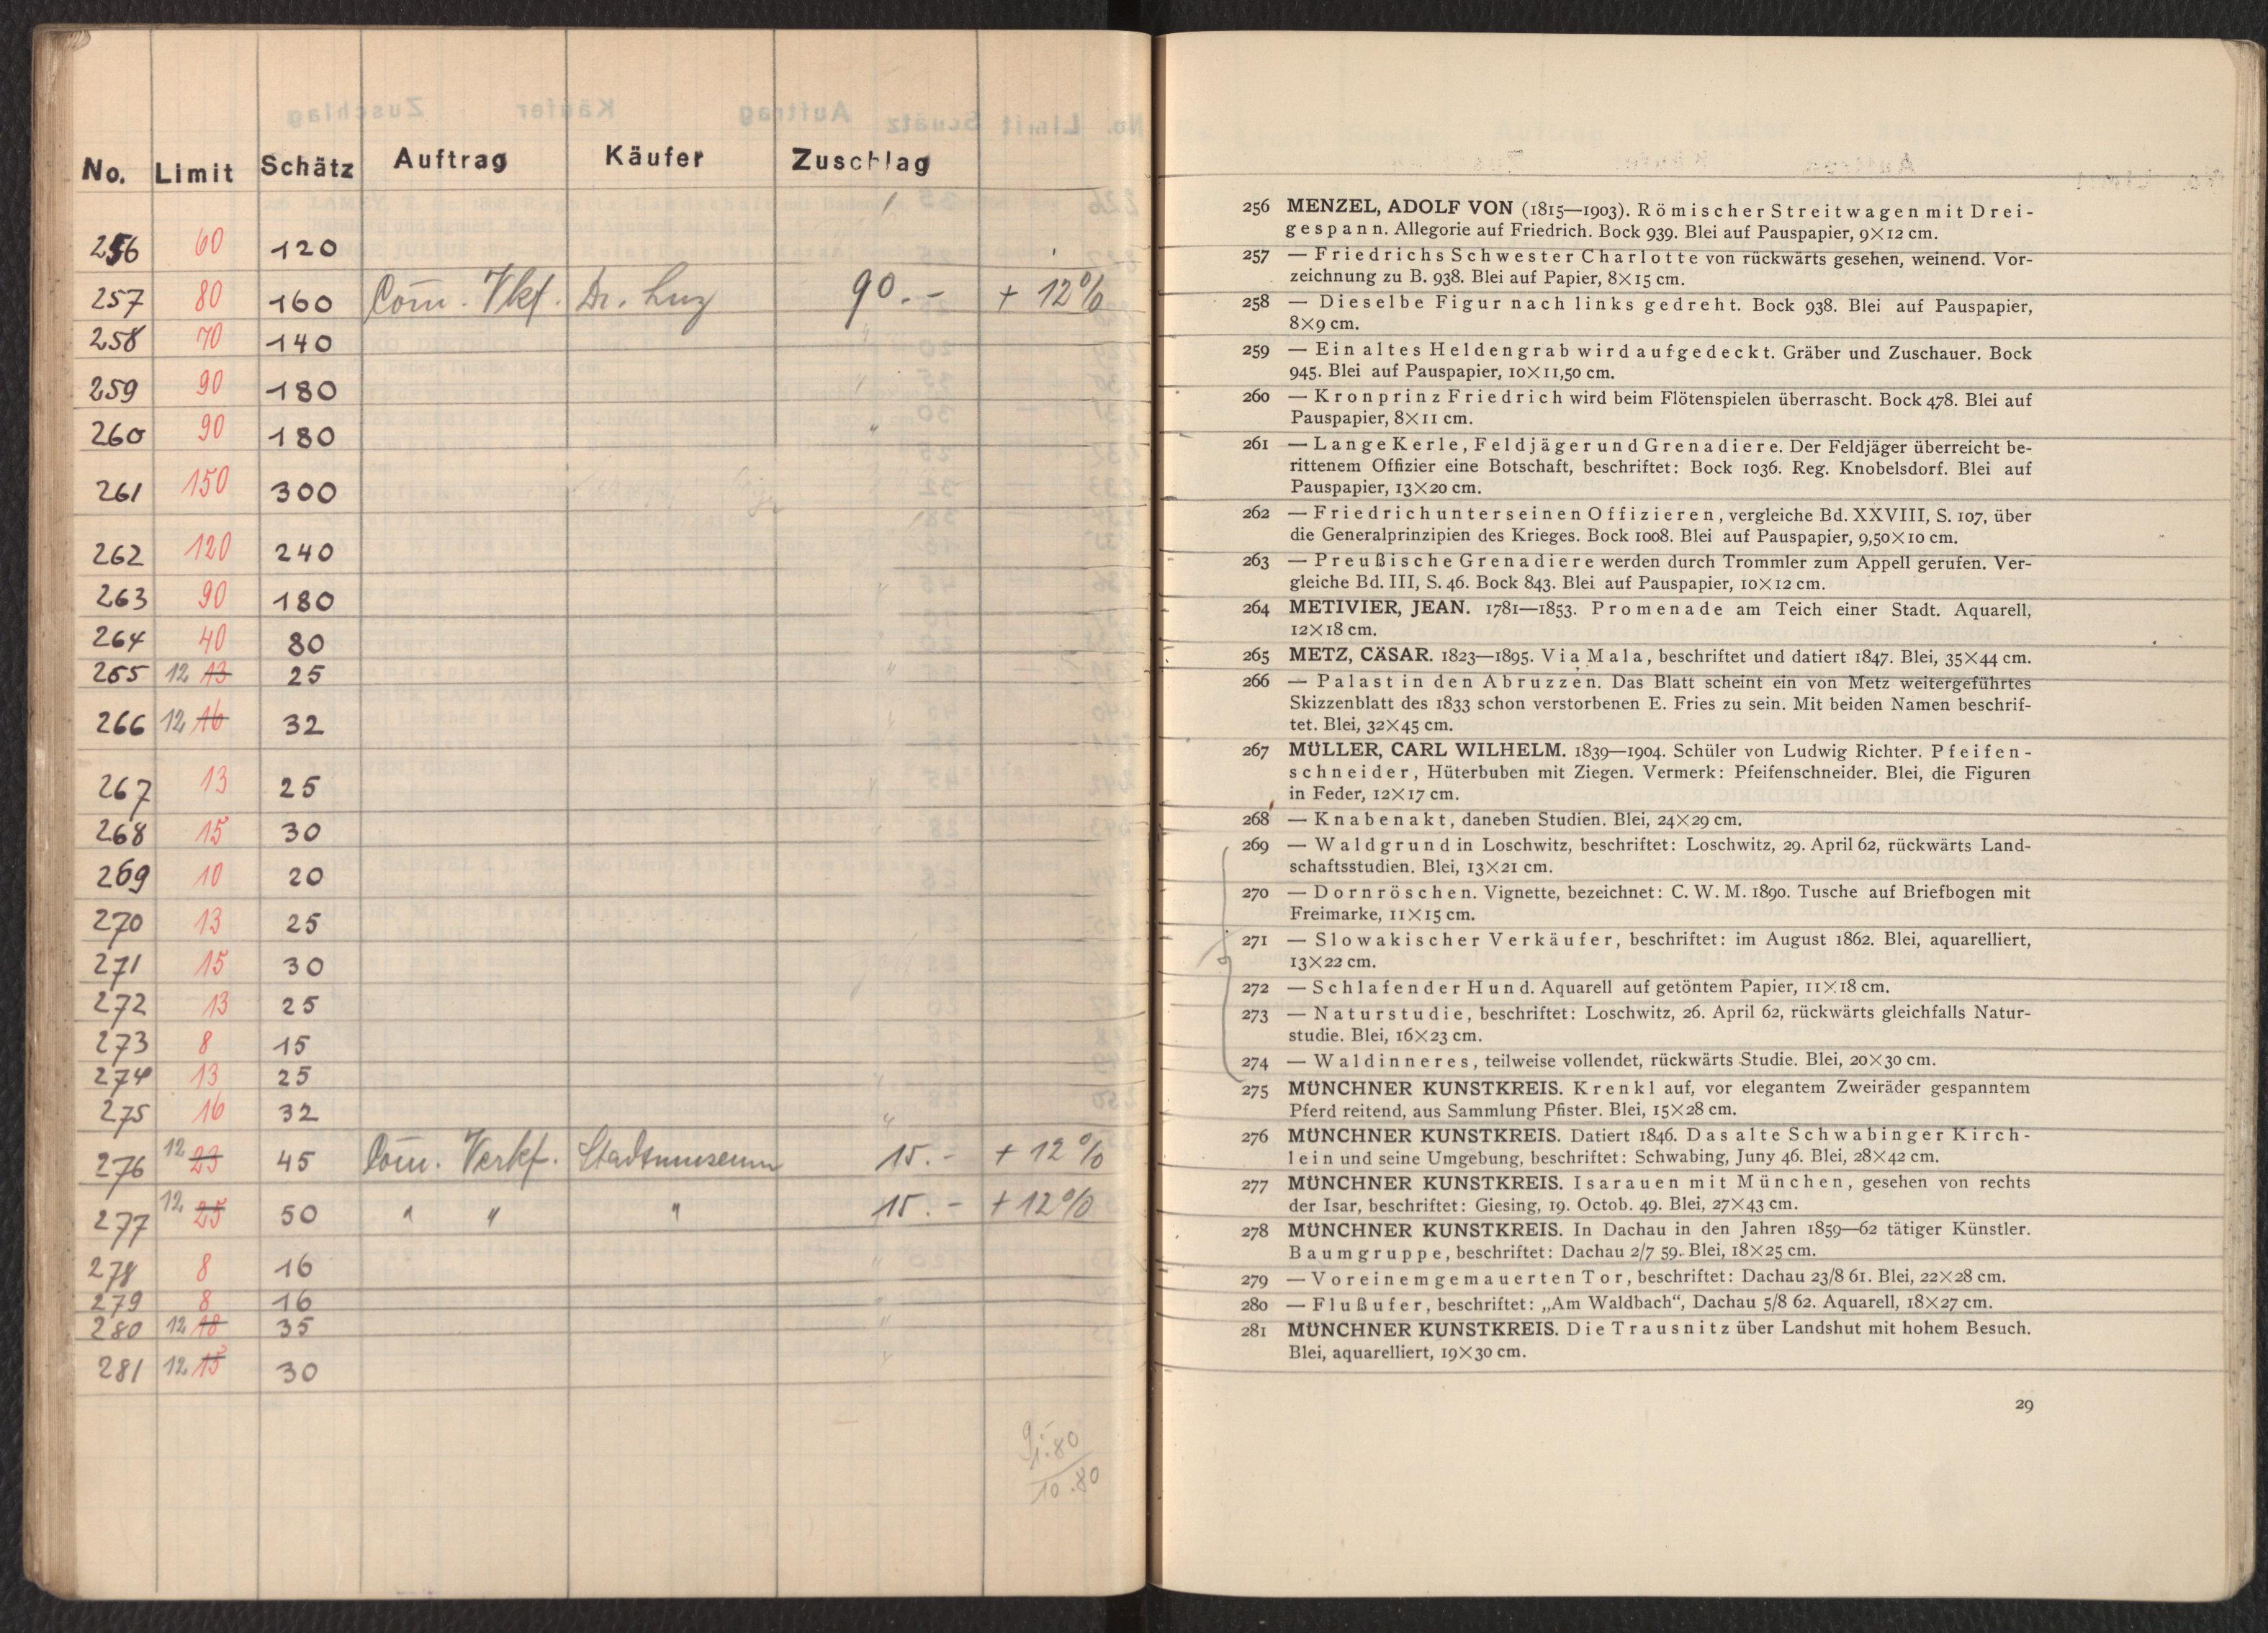 No. Limit Schätz Auftrag Käufer Zuschlag
256 60 120
257 80 160 Com. Vkf. Dr. Luz 90.- + 12%
258 70 140 "
259 90 180 "
260 90 180 "
261 150 300
262 120 240
263 90 180 "
264 40 80 "
265 12 13 25 "
266 12 16 32 "
267 13 25 "
268 15 30 "
269 10 20
270 13 25
271 15 30
272 13 25
273 8 15
274 13 25 "
275 16 32 "
276 12 23 45 Com. Verkf. Stadtmuseum 15.- + 12%
277 12 25 50 " " " 15.- + 12%
278 8 16 "
279 8 16 "
280 12 18 35 "
281 12 15 30 "
9.-
1.80
10.80
256 MENZEL, ADOLF VON (1815—1903). Römischer Streitwagen mit Drei-
gespann. Allegorie auf Friedrich. Bock 939. Blei auf Pauspapier, 9×12 cm.
257 — Friedrichs Schwester Charlotte von rückwärts gesehen, weinend. Vor-
zeichnung zu B. 938. Blei auf Papier, 8×15 cm.
258 — Dieselbe Figur nach links gedreht. Bock 938. Blei auf Pauspapier,
8×9 cm.
259 — Ein altes Heldengrab wird aufgedeckt. Gräber und Zuschauer. Bock
945. Blei auf Pauspapier, 10×11,50 cm.
260 — Kronprinz Friedrich wird beim Flötenspielen überrascht. Bock 478. Blei auf
Pauspapier, 8×11 cm.
261 — Lange Kerle, Feldjäger und Grenadiere. Der Feldjäger überreicht be-
rittenem Offizier eine Botschaft, beschriftet: Bock 1036. Reg. Knobelsdorf. Blei auf
Pauspapier, 13×20 cm.
262 — Friedrich unter seinen Offizieren, vergleiche Bd. XXVIII, S. 107, über
die Generalprinzipien des Krieges. Bock 1008. Blei auf Pauspapier, 9,50×10 cm.
263 — Preußische Grenadiere werden durch Trommler zum Appell gerufen. Ver-
gleiche Bd. III, S. 46. Bock 843. Blei auf Pauspapier, 10×12 cm.
264 METIVIER, JEAN. 1781—1853. Promenade am Teich einer Stadt. Aquarell,
12×18 cm.
265 METZ, CÄSAR. 1823—1895. Via Mala, beschriftet und datiert 1847. Blei, 35×44 cm.
266 — Palast in den Abruzzen. Das Blatt scheint ein von Metz weitergeführtes
Skizzenblatt des 1833 schon verstorbenen E. Fries zu sein. Mit beiden Namen beschrif-
tet. Blei, 32×45 cm.
267 MÜLLER, CARL WILHELM. 1839—1904. Schüler von Ludwig Richter. Pfeifen-
schneider, Hüterbuben mit Ziegen. Vermerk: Pfeifenschneider. Blei, die Figuren
in Feder, 12×17 cm.
268 — Knabenakt, daneben Studien. Blei, 24×29 cm.
269 — Waldgrund in Loschwitz, beschriftet: Loschwitz, 29. April 62, rückwärts Land-
schaftsstudien. Blei, 13×21 cm.
270 — Dornröschen. Vignette, bezeichnet: C. W. M. 1890. Tusche auf Briefbogen mit
Freimarke, 11×15 cm.
271 — Slowakischer Verkäufer, beschriftet: im August 1862. Blei, aquarelliert,
13×22 cm.
272 — Schlafender Hund. Aquarell auf getöntem Papier, 11×18 cm.
273 — Naturstudie, beschriftet: Loschwitz, 26. April 62, rückwärts gleichfalls Natur-
studie. Blei, 16×23 cm.
274 — Waldinneres, teilweise vollendet, rückwärts Studie. Blei, 20×30 cm.
275 MÜNCHNER KUNSTKREIS. Krenkl auf, vor elegantem Zweiräder gespanntem
Pferd reitend, aus Sammlung Pfister. Blei, 15×28 cm.
276 MÜNCHNER KUNSTKREIS. Datiert 1846. Das alte Schwabinger Kirch-
lein und seine Umgebung, beschriftet: Schwabing, Juny 46. Blei, 28×42 cm.
277 MÜNCHNER KUNSTKREIS. Isarauen mit München, gesehen von rechts
der Isar, beschriftet: Giesing, 19. Octob. 49. Blei, 27×43 cm.
278 MÜNCHNER KUNSTKREIS. In Dachau in den Jahren 1859—62 tätiger Künstler.
Baumgruppe, beschriftet: Dachau 2/7 59. Blei, 18×25 cm.
279 — Vor einem gemauerten Tor, beschriftet: Dachau 23/8 61. Blei, 22×28 cm.
280 — Flußufer, beschriftet: „Am Waldbach“, Dachau 5/8 62. Aquarell, 18×27 cm.
281 MÜNCHNER KUNSTKREIS. Die Trausnitz über Landshut mit hohem Besuch.
Blei, aquarelliert, 19×30 cm.
29